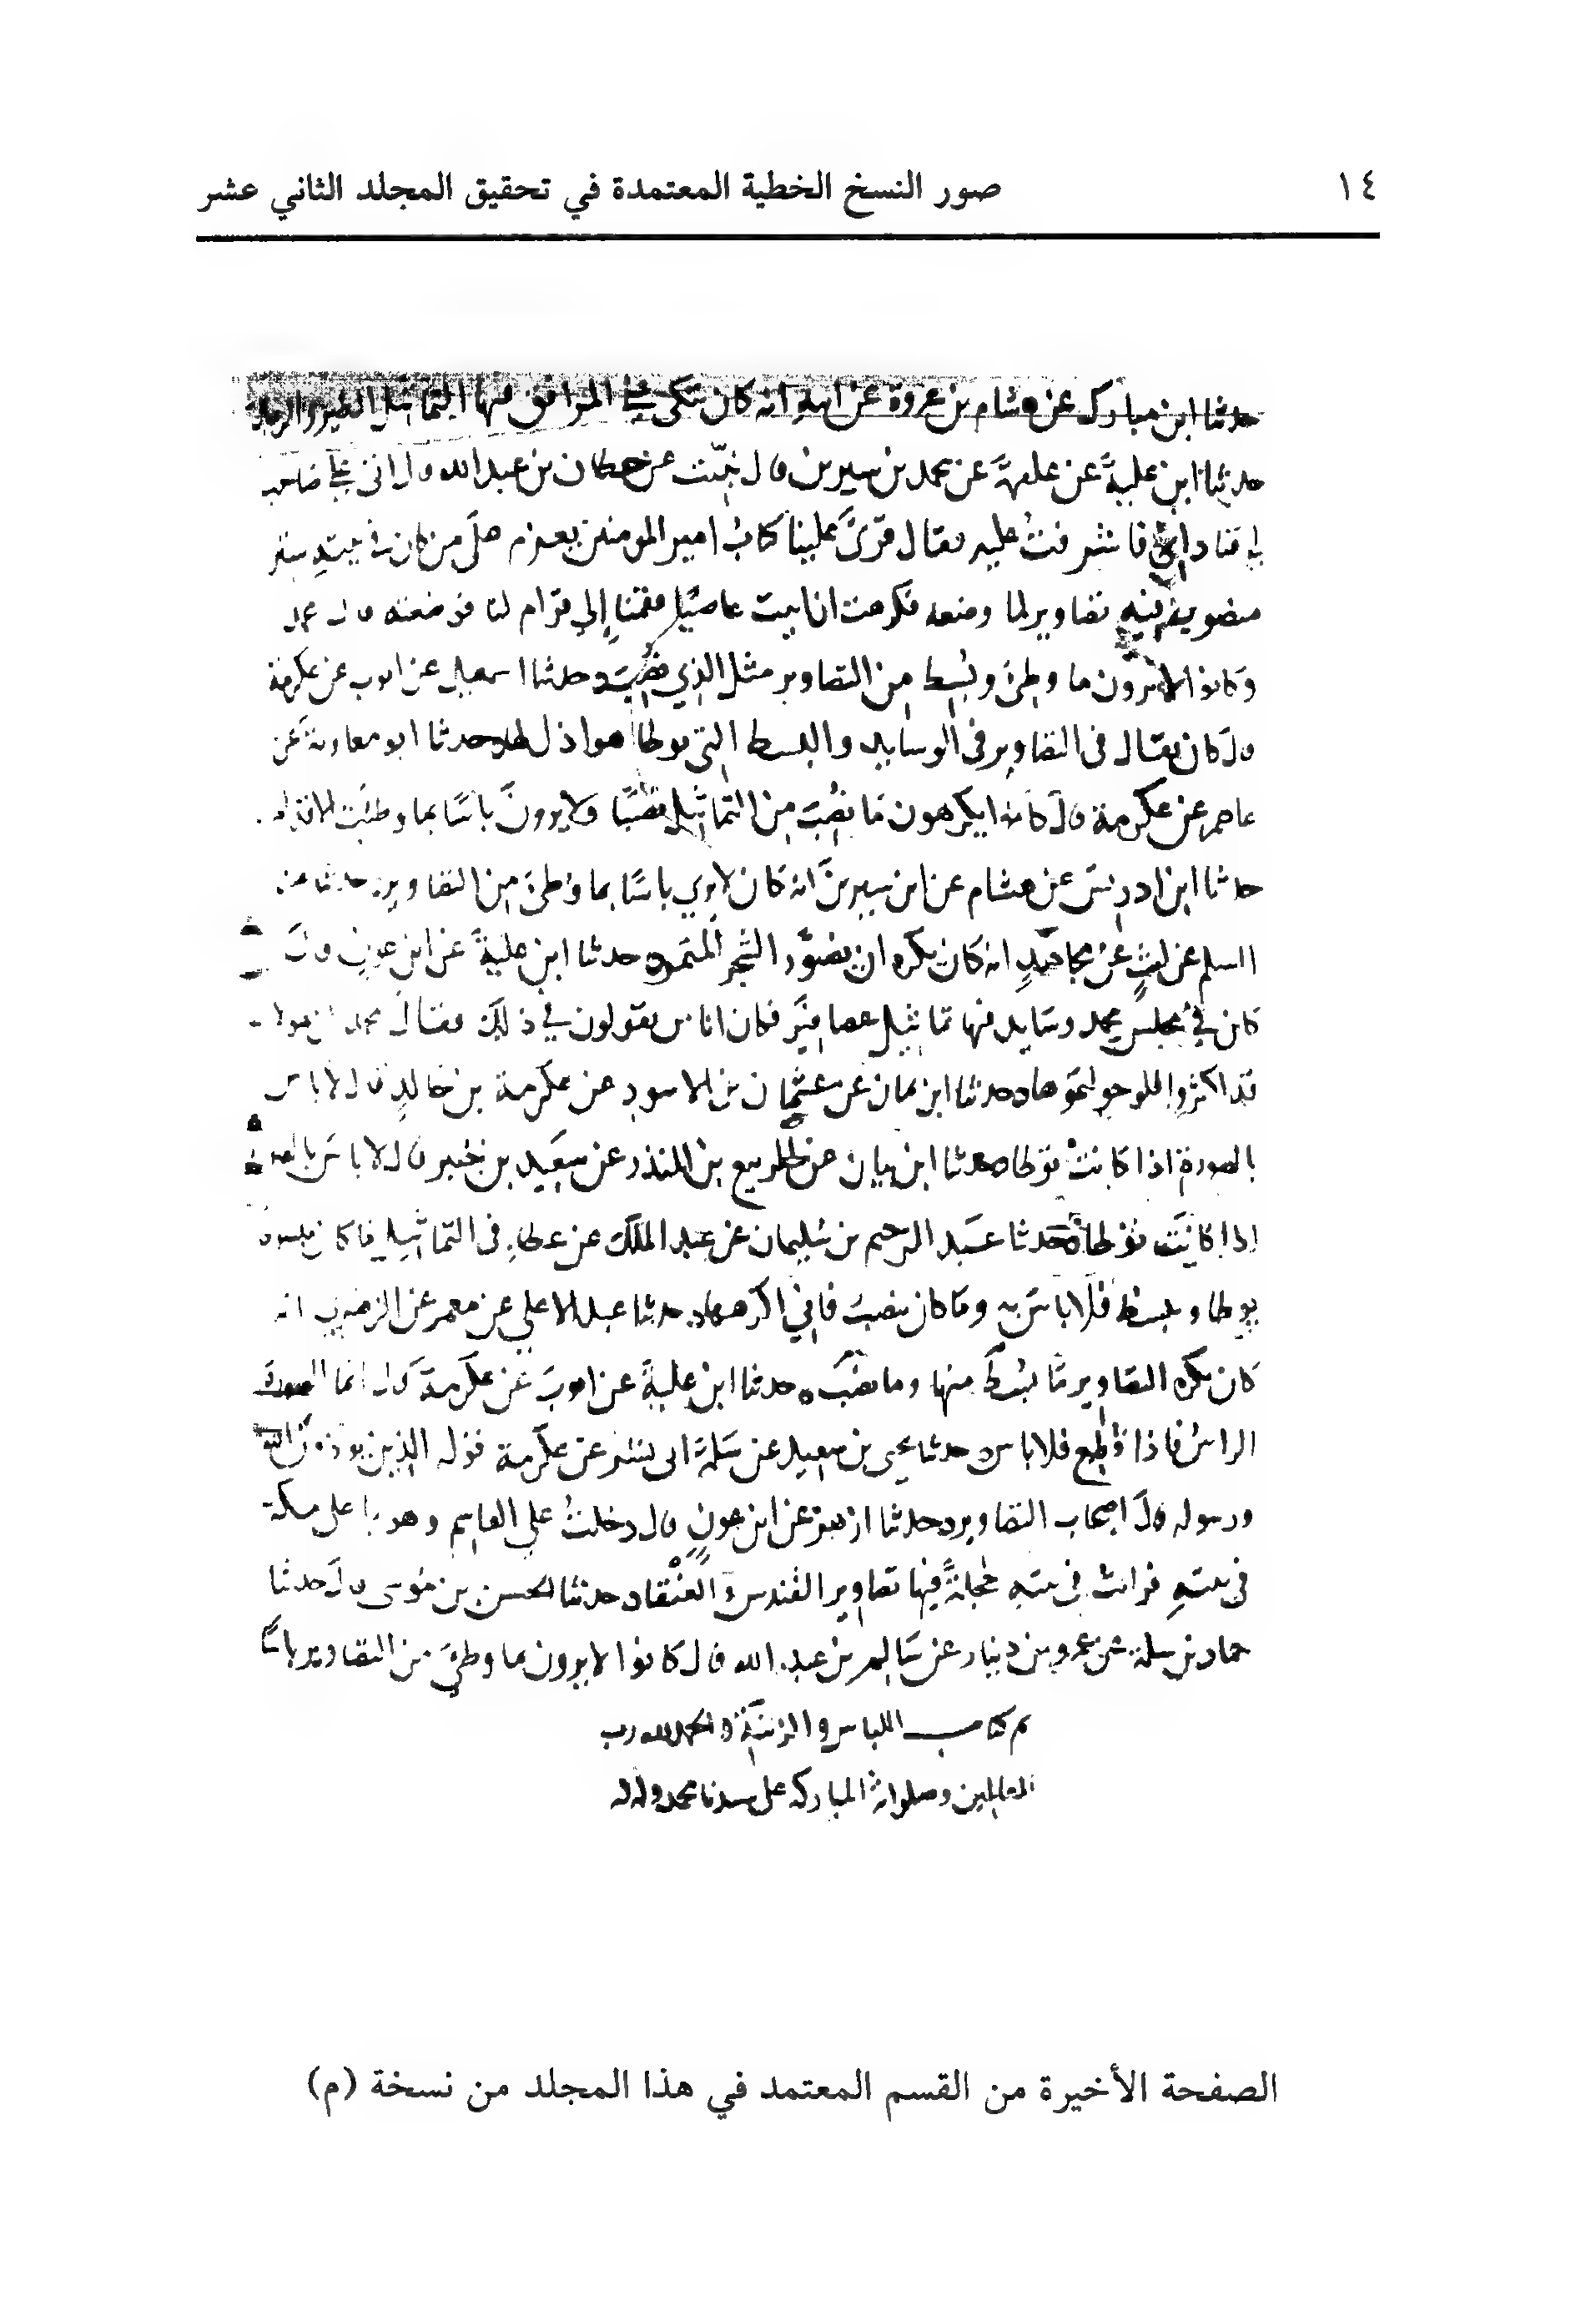 ١٤
صور النسخ الخطية المعتمدة في تحقيق المجلد الثاني عشر
حدثنا ابن مبارك عن هشام بن عروة عن ابيه انه كان يتكي على المرافق فيها التماثيل الطير والرجال
حدثنا ابن علية عن علقمة عن محمد بن سيرين قال نبئت عن حطان بن عبد الله قال اتى علي صاحب
لي فنادانى فاشرفت عليه فقال قرئ علينا كتاب امير المومنين يعزم على من كان في بيته ستر
منصوب فيه تصاوير لما وضعه فكرهت ان ابيت عاصيا فقمنا إلى قرام لنا فوضعته قال محمد
وكانوا لا يرون ما وطئ وبسط من التصاوير مثل الذي نصب حدثنا اسمعيل عن ايوب عن عكرمة
قال كان يقال في التصاوير في الوسايد والبسط التي توطا هو اذل لها حدثنا ابو معاوية عن
عاصم عن عكرمة قال كانوا يكرهون ما نصب من التماثيل نصبا ولا يرون باسا بما وطئت الاقدام
حدثنا ابن ادريس عن هشام عن ابن سيرين انه كان لا يرى باسا بما وطئ من التصاوير حدثنا
السلم عن ليث عن مجاهد انه كان يكره ان يصور الشجر المثمر حدثنا ابن علية عن ابن عون قال
كان في مجلس محمد وسايد فيها تماثيل عصافير فكان اناس يقولون في ذلك فقال محمد
قد اكثروا لو حولتموها حدثنا ابن يمان عن عثمان بن الاسود عن عكرمة بن خالد قال لا باس
بالصورة اذا كانت توطا حدثنا ابن يمان عن الربيع بن المنذر عن سعيد بن جبير قال لا باس
اذا كانت توطا حدثنا عبد الرحيم بن سليمان عن عبد الملك عن عطاء في التماثيل ما كان مبسوطا
يوطا ويبسط فلا باس به وما كان ينصب فاني اكرهها حدثنا عبد الاعلى عن معمر عن الزهري انه
كان يكره التصاوير ما بسط منها وما نصب حدثنا ابن علية عن ايوب عن عكرمة قال انما الصورة
الراس فاذا قطع فلا باس حدثنا يحيى بن سعيد عن سلمة ابى بشر عن عكرمة قوله الذين يوذون الله
ورسوله قال اصحاب التصاوير حدثنا ازهر عن ابن عون قال دخلت على القاسم وهو باعلى مكة
في بيته فرايت في بيته حجلة فيها تصاوير القندس والعنقا حدثنا الحسن بن موسى قال حدثنا
حماد بن سلمة عن عمرو بن دينار عن سالم بن عبد الله قال كانوا لا يرون بما وطئ من التصاوير باسا
تم كتاب اللباس والزينة والحمد لله رب
العالمين وصلواته المباركة على سيدنا محمد واله
الصفحة الأخيرة من القسم المعتمد في هذا المجلد من نسخة (م)